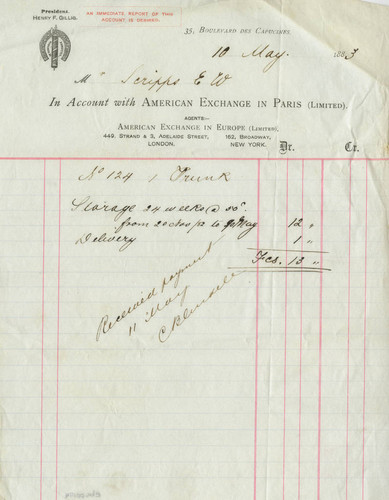 President.
HENRY F. GILLIG.
AN IMMEDIATE REPORT OF THIS
ACCOUNT, IS DESIRED.
35, BOULEVARD DES CAPUCINES
10 May. 1883
Mr Scripps E W
In Account with AMERICAN EXCHANGE IN PARIS (LIMITED),
AGENTS:—
AMERICAN EXCHANGE IN EUROPE (LIMITED),
449, STRAND & 3, ADELAIDE STREET, 162, BROADWAY,
LONDON. NEW YORK. Dr. Cr.
No 124 1 Trunk
Storage 24 weeks @ 50c
from 20 Nov/82 to May 12 "
Delivery 1 "
Fcs. 13 "
Received payment
11 May